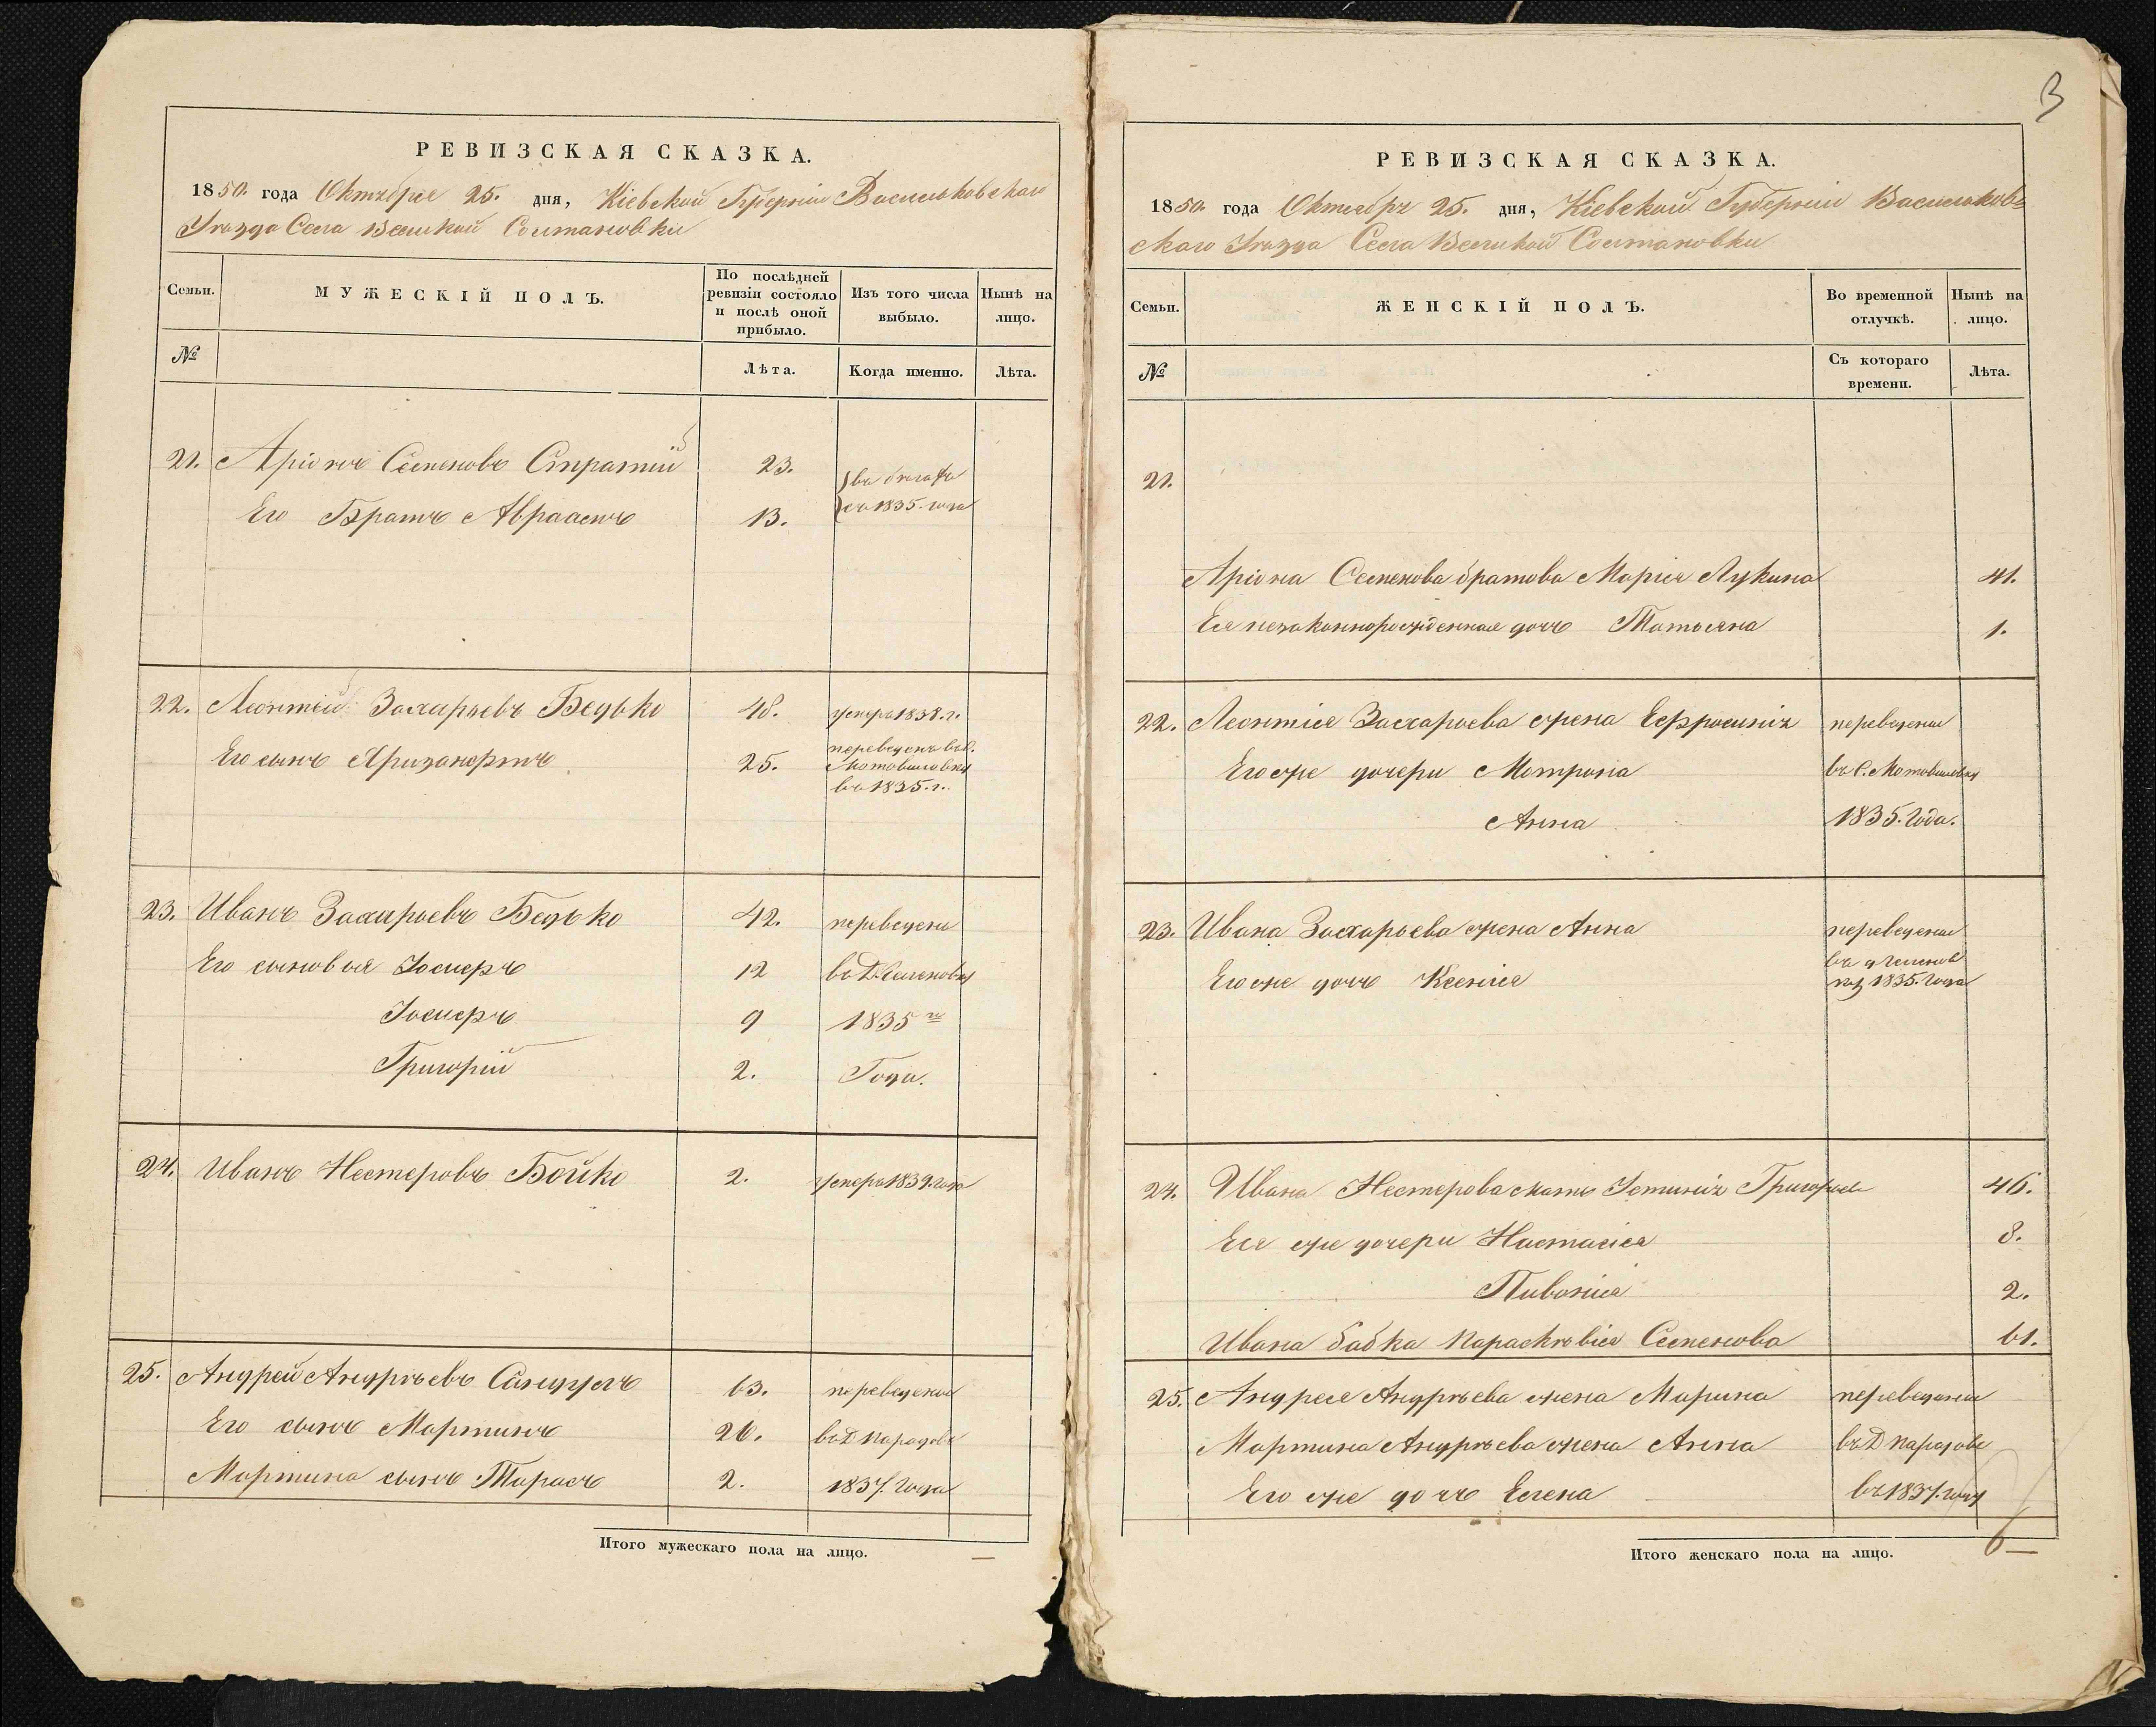 3
РЕВИЗСКАЯ СКАЗКА.
1850 года Октября 25. дня, Кіевской Губерніи Васильковскаго
Уѣзда Села Великой Солтановки
Семьи.
МУЖЕСКІЙ ПОЛЪ.
По послѣдней ревизіи состояло и послѣ оной прибыло.
Изъ того числа выбыло.
Нынѣ на лицо.
№
Лѣта.
Когда именно.
Лѣта.
21. Аріонъ Семеновъ 23. въ бѣгахъ
Его Братъ Авраамъ 13. съ 1835. года
22. Леонтій Захарьевъ Бедько 48. умеръ 1838. г.
Его сынъ 25. переведенъ въ С. Мотовиловку въ 1835. г.
23. Иванъ Захарьевъ Бедько 42. переведены
Его сыновья Іосифъ 12 въ Д.
Іосифъ 9 1835 го
Григорій 2. Года.
24. Иванъ Нестеровъ Бойко 2. умеръ 1839. года
25. Андрей Андрѣевъ 63. переведены
Его сынъ Мартинъ 26. въ Д
Мартина сынъ Тарасъ 2. 1837. Года
Итого мужескаго пола на лицо. —
РЕВИЗСКАЯ СКАЗКА.
1850 года Октября 25. дня, Кіевской Губерніи Васильков-
скаго Уѣзда Села Великой Солтановки
Семьи.
ЖЕНСКІЙ ПОЛЪ.
Во временной отлучкѣ.
Нынѣ на лицо.
№
Съ котораго времени.
Лѣта.
21.
Аріона Семенова братова Марія Лукина 41.
Ея незаконнорожденная дочь Татьяна 1.
22. Леонтія Захарьева жена Ефросинія переведены
Его же дочери Мотрона въ С. Мотовиловку
Анна 1835. Года.
23. Ивана Захарьева жена Анна переведены
Его же дочь Ксенія 1835. Года
24. Ивана Нестерова мать Устинія 46.
Ея же дочери Настасія 8.
2.
Ивана бабка Параскѣвія Семенова 61.
25. Андрея Андрѣева жена Марина переведены
Мартина Андрѣева жена Анна въ Д
Его же дочь Елена въ 1837. году
Итого женскаго пола на лицо. 6 —